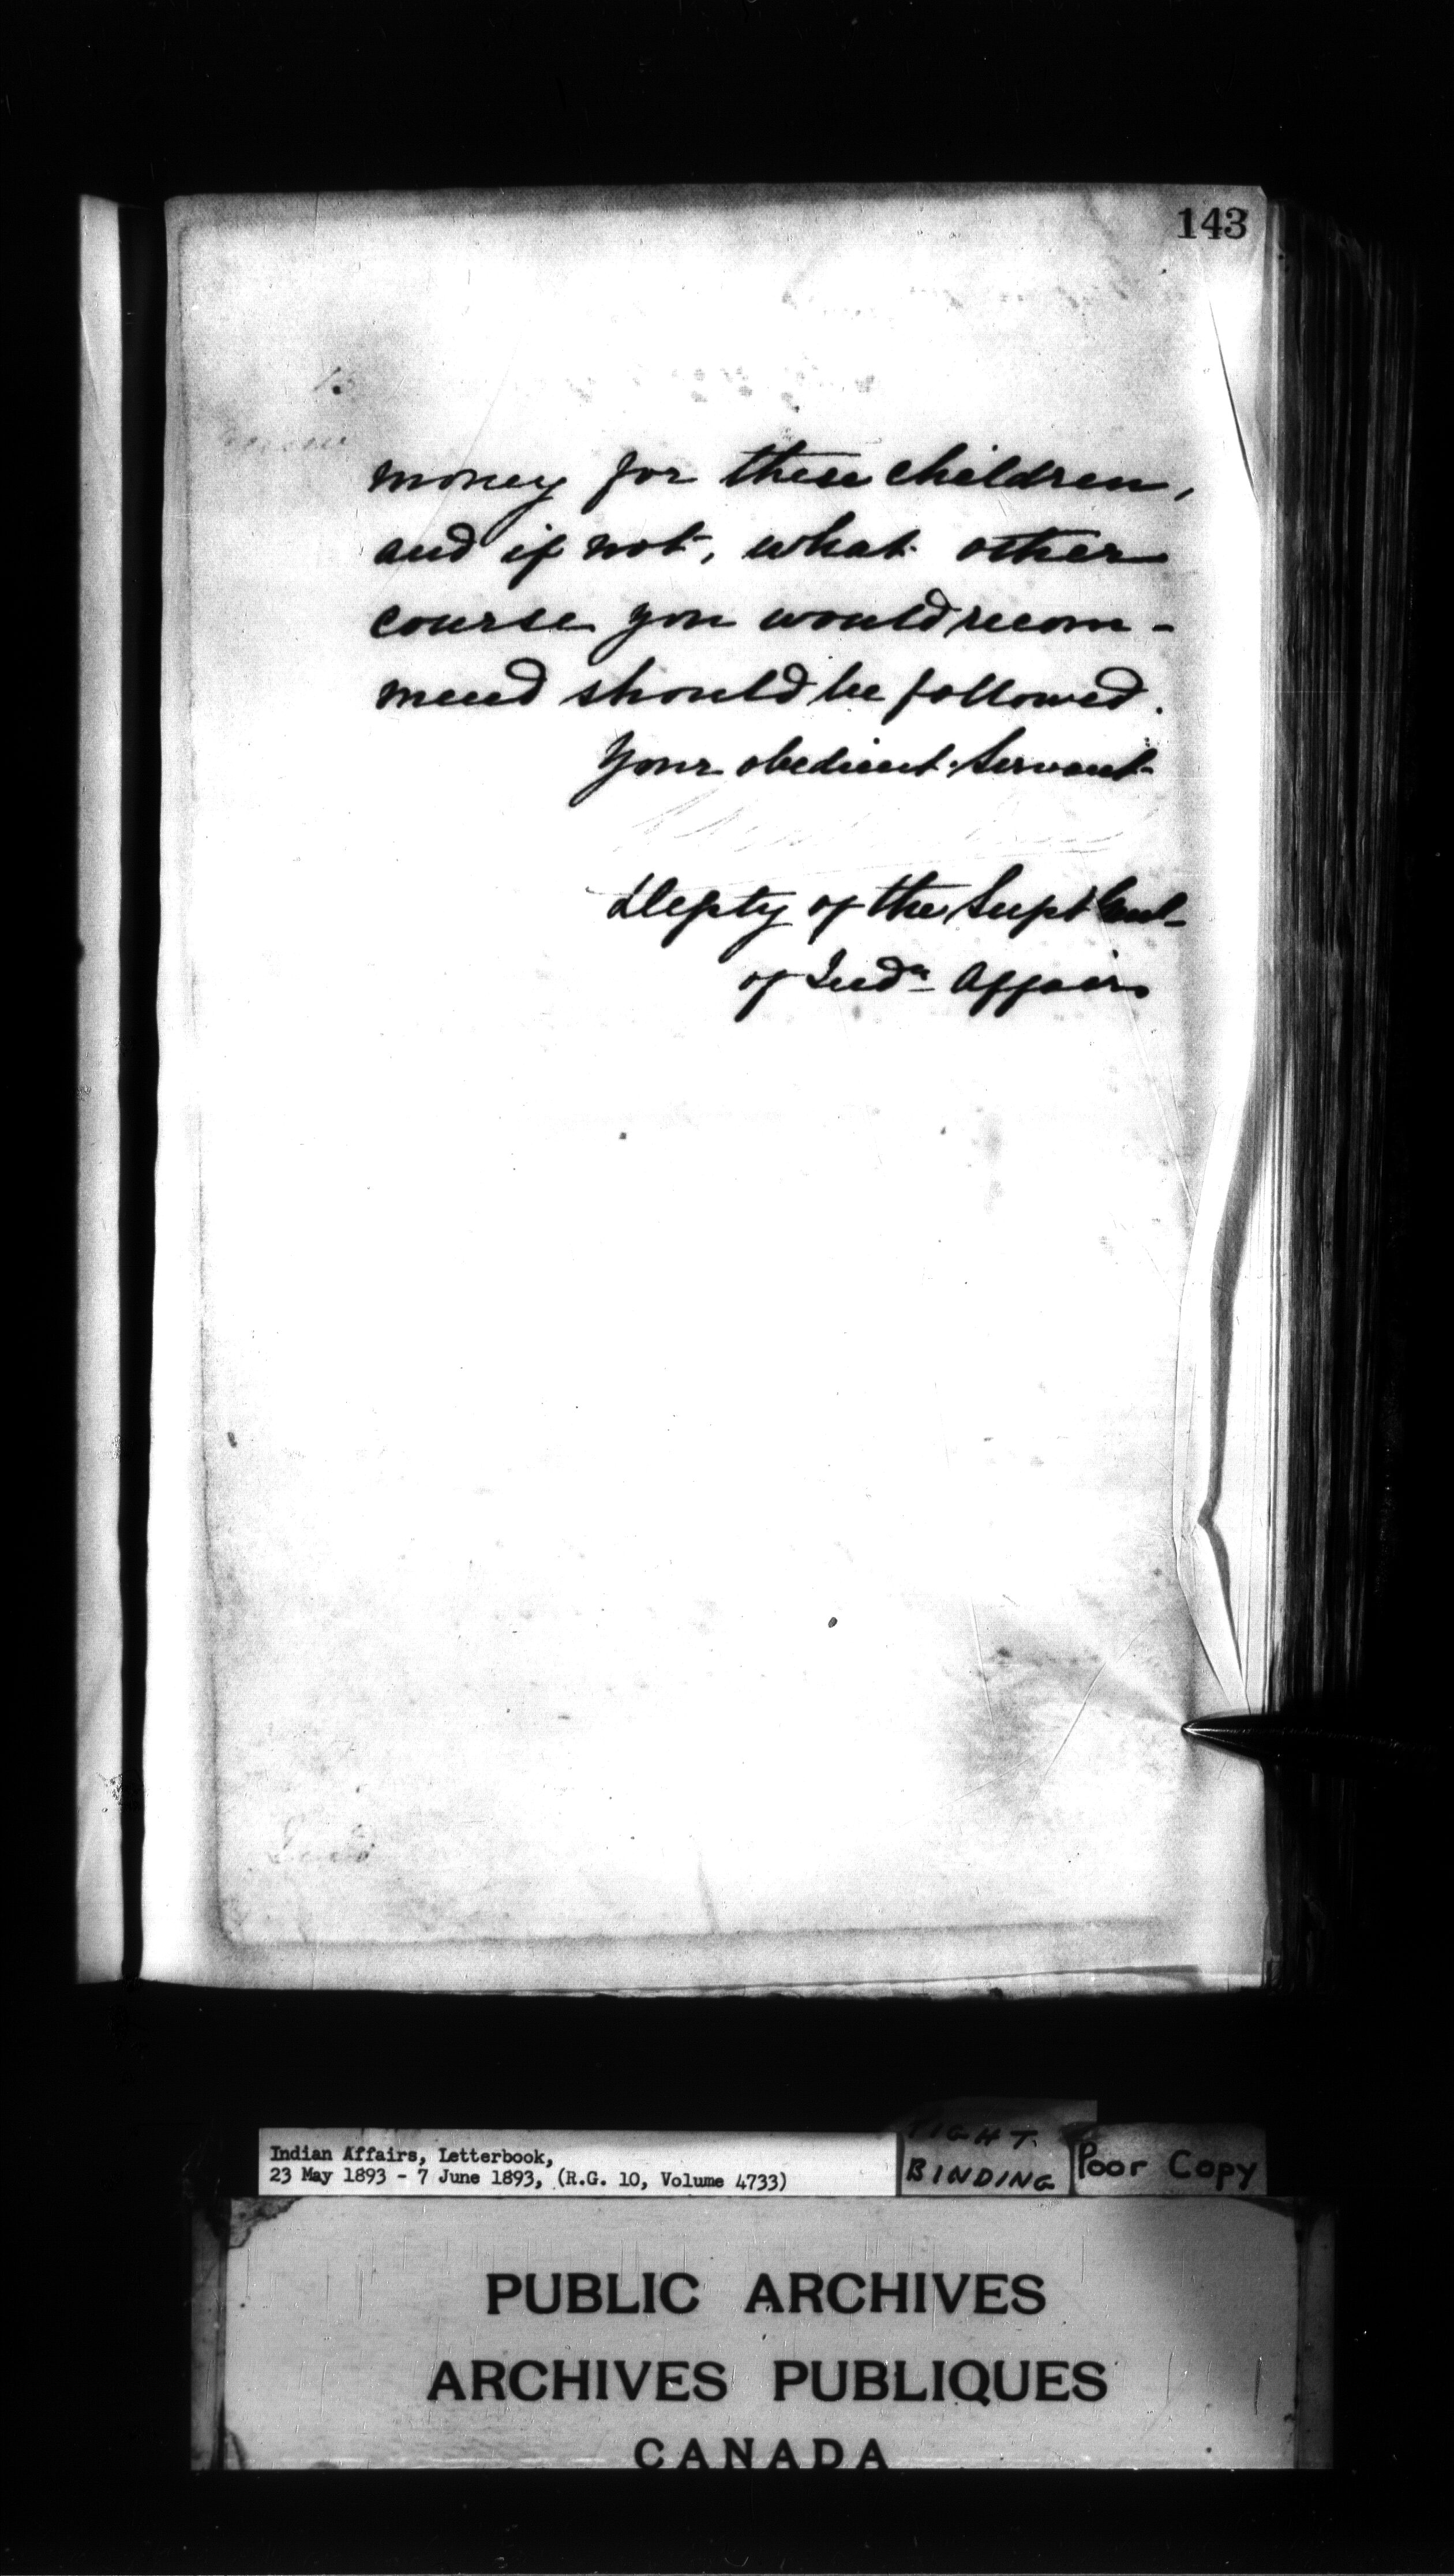 143
money for these children,
and if not, what other
course you would recom-
mend should be followed.
Your obedient servant
Depty of the Supt Genl
of Indn Affairs
Indian Affairs, Letterbook,
23 May 1893 - 7 June 1893, (R.G. 10, Volume 4733)
TIGHT
BINDING
Poor Copy
PUBLIC ARCHIVES
ARCHIVES PUBLIQUES
CANADA